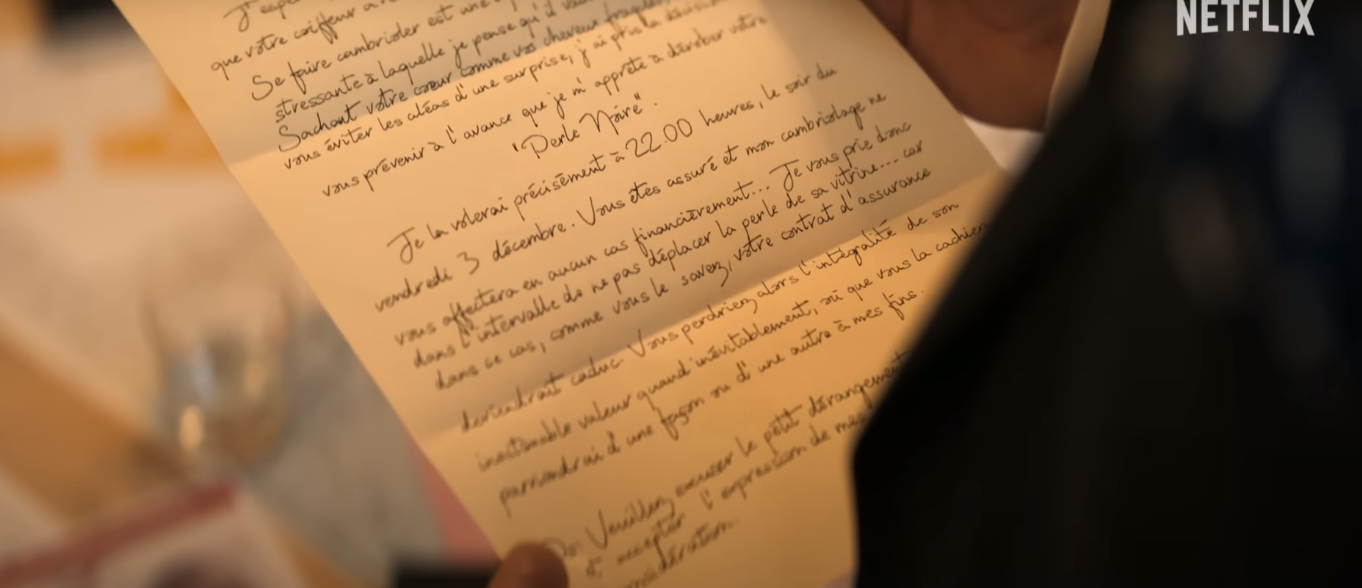 NETFLIX
J'espè
que votre coiffeur a
Se faire cambrioler est une
stressante à laquelle je pense qu'il
Sachant votre cœur comme vos cheveux fragiles
vous éviter les aléas d'une surprise, j'ai pris la décision
vous prévenir à l'avance que je m'apprête à dérober votre
"Perle Noire".
Je la volerai précisément à 22.00 heures, le soir du
vendredi 3 décembre. Vous êtes assuré et mon cambriolage ne
vous affectera en aucun cas financièrement... Je vous prie donc
dans l'intervalle de ne pas déplacer la perle de sa vitrine... car
dans ce cas, comme vous le savez, votre contrat d'assurance
deviendrait caduc. Vous perdriez alors l'intégralité de son
inestimable valeur quand inévitablement, où que vous la cachiez
parviendrai d'une façon ou d'une autre à mes fins.
Veuillez excuser le petit dérangement
accepter l'expression de mes